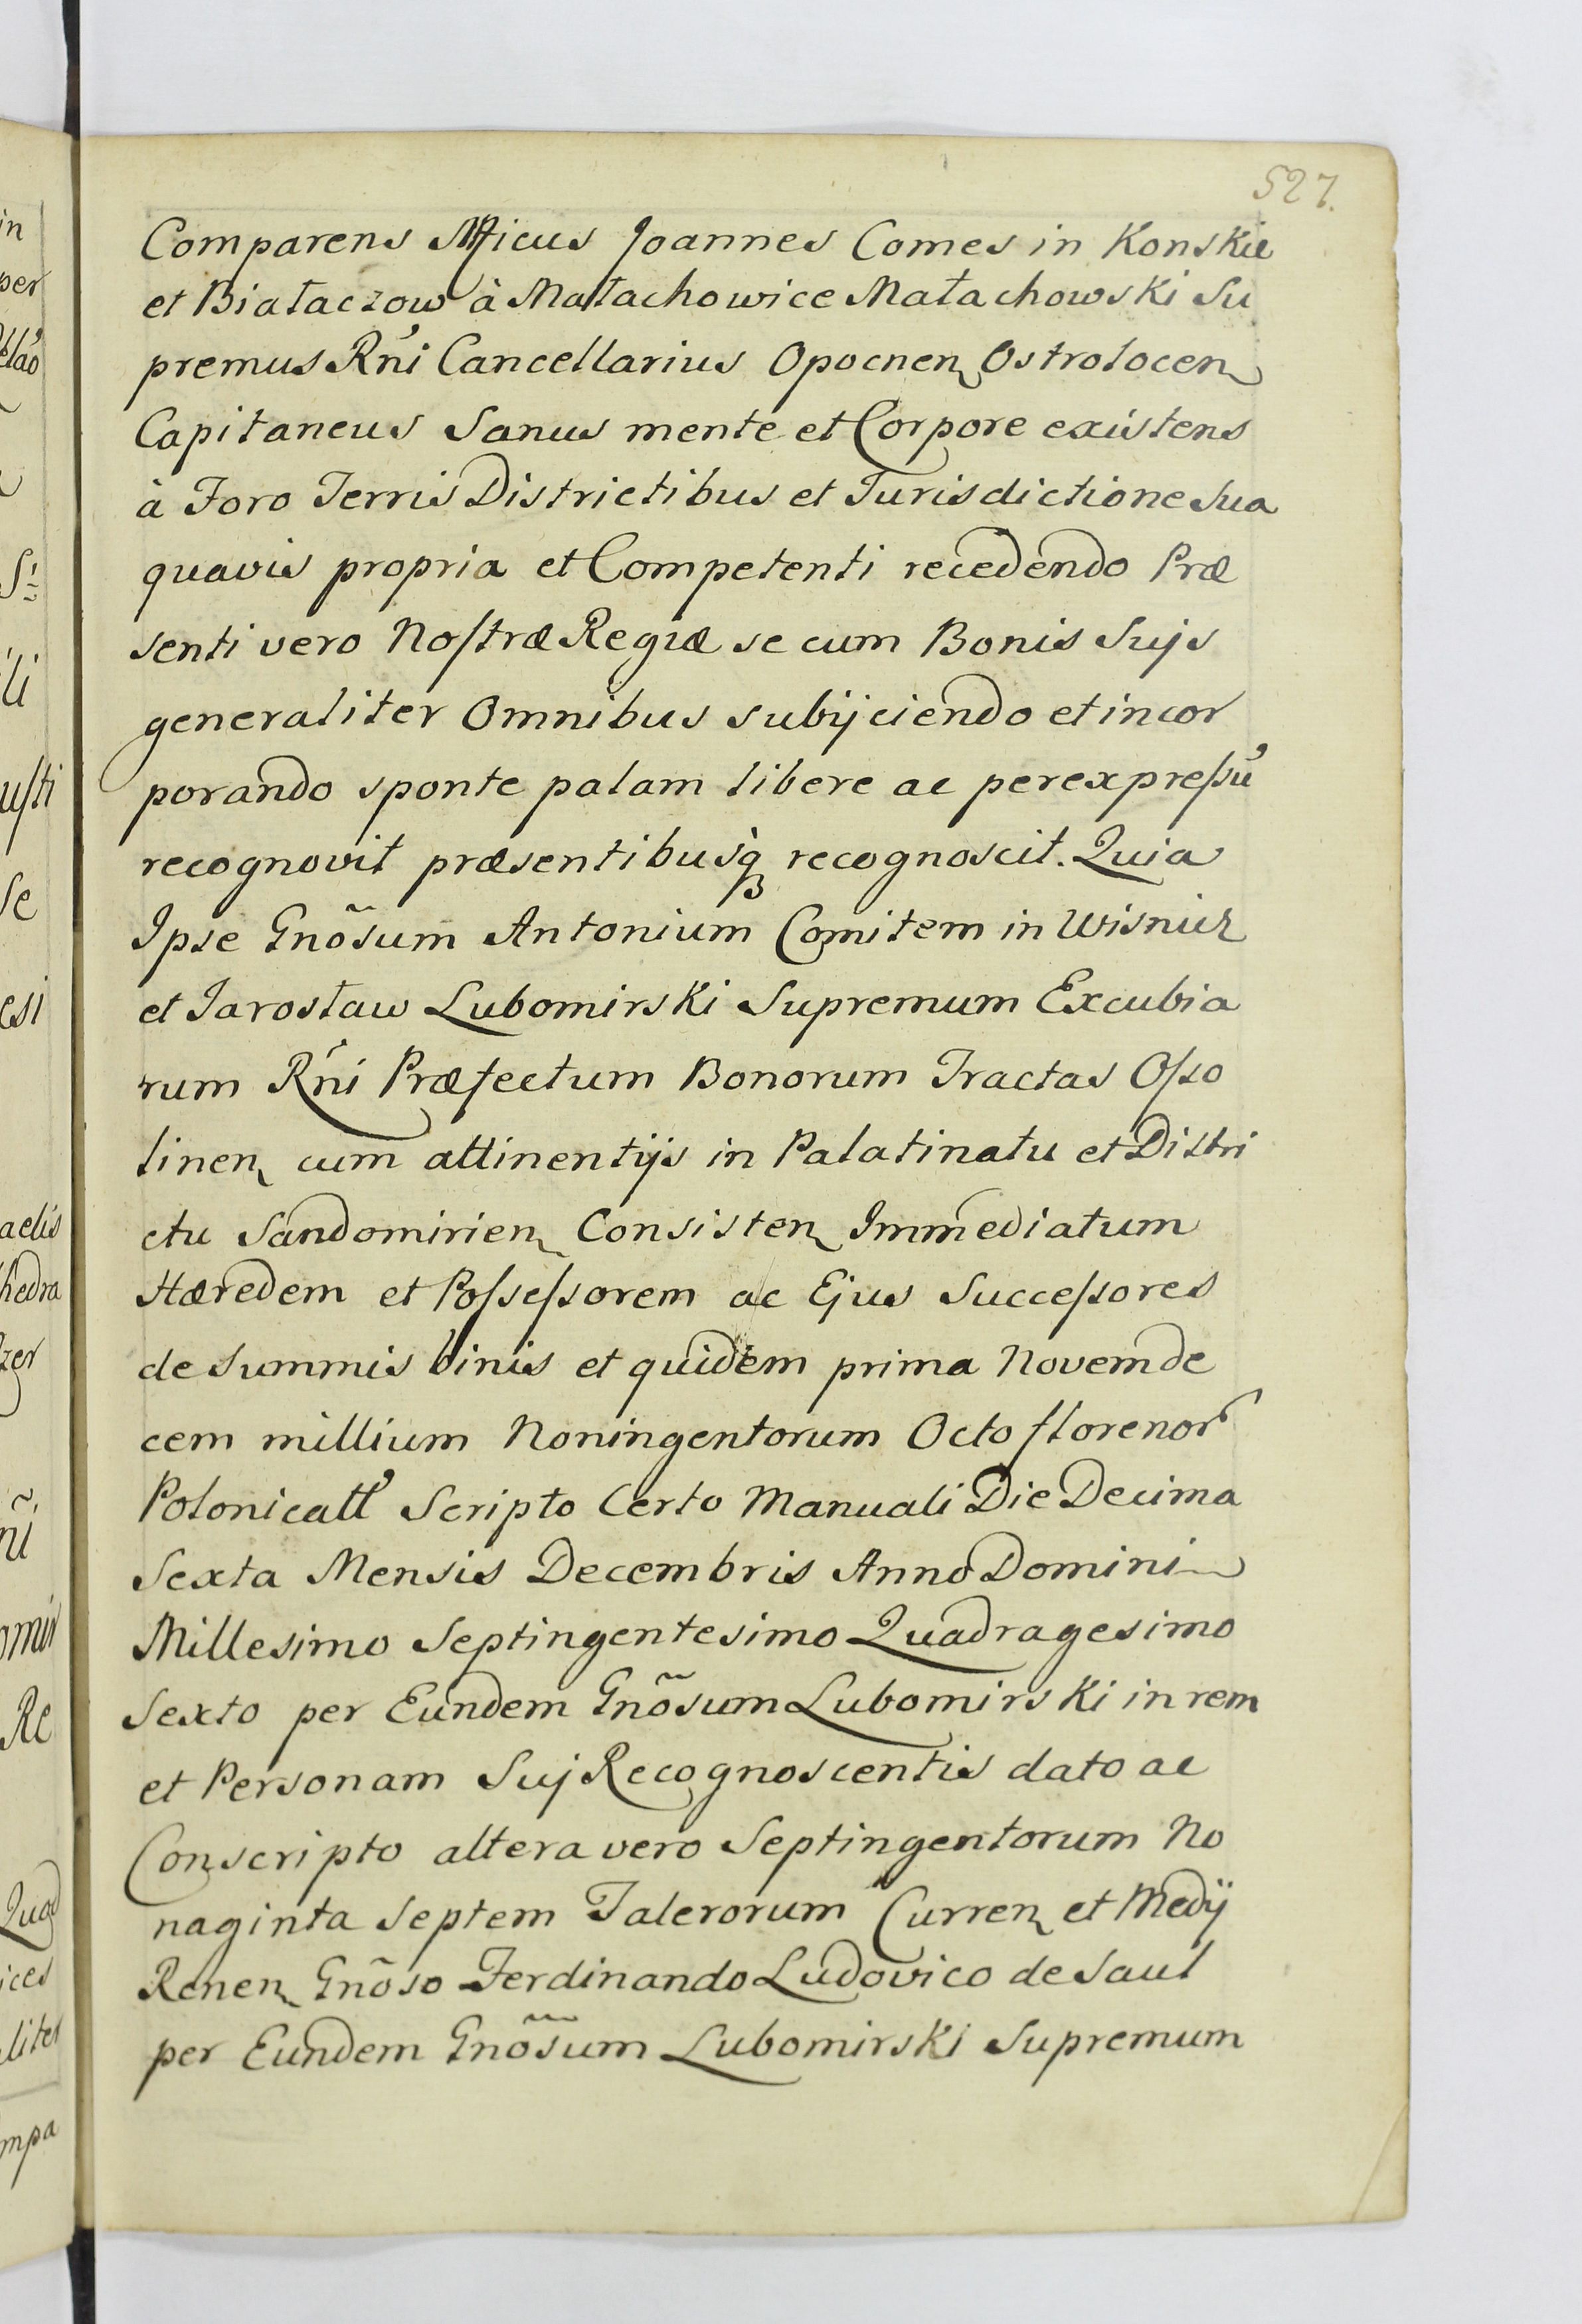 527.
Comparens Mficus Joannes Comes in Konskie
et Białaczow à Małachowice Małachowski Su
premus Rńi Cancellarius Opocnen Ostrolocen
Capitaneus Sanus mente et Corpore existens
à Foro Terris Districtibus et Jurisdictione Sua
quavis propria et Competenti recedendo Præ
senti vero Nostræ Regiæ se cum Bonis Suijs
generaliter Omnibus subijciendo et incor
porando sponte palam libere ac per expressũ
recognovit præsentibusq recognoscit. Quia
Ipse Gnõsum Antonium Comitem in Wisnicz
et Jarosław Lubomirski Supremum Excubia
rum Rńi Præfectum Bonorum Tractas Osso
linen cum attinentijs in Palatinatu et Distri
ctu Sandomirien Consisten Immediatum
Hæredem et Possessorem ac Ejus Successores
de Summis binis et quidem prima Novemde
cem millium Noningentorum Octo florenor
Polonicall Scripto Certo Manuali Die Decima
Sexta Mensis Decembris Anno Domini
Millesimo Septingentesimo Quadragesimo
Sexto per Eundem Gnõsum Lubomirski in rem
et Personam Suj Recognoscentis dato ac
Conscripto altera vero Septingentorum No
naginta Septem Talerorum Curren et Medij
Renen Gnõso Ferdinando Ludovico de Saul
per Eundem Gnõsum Lubomirski Supremum